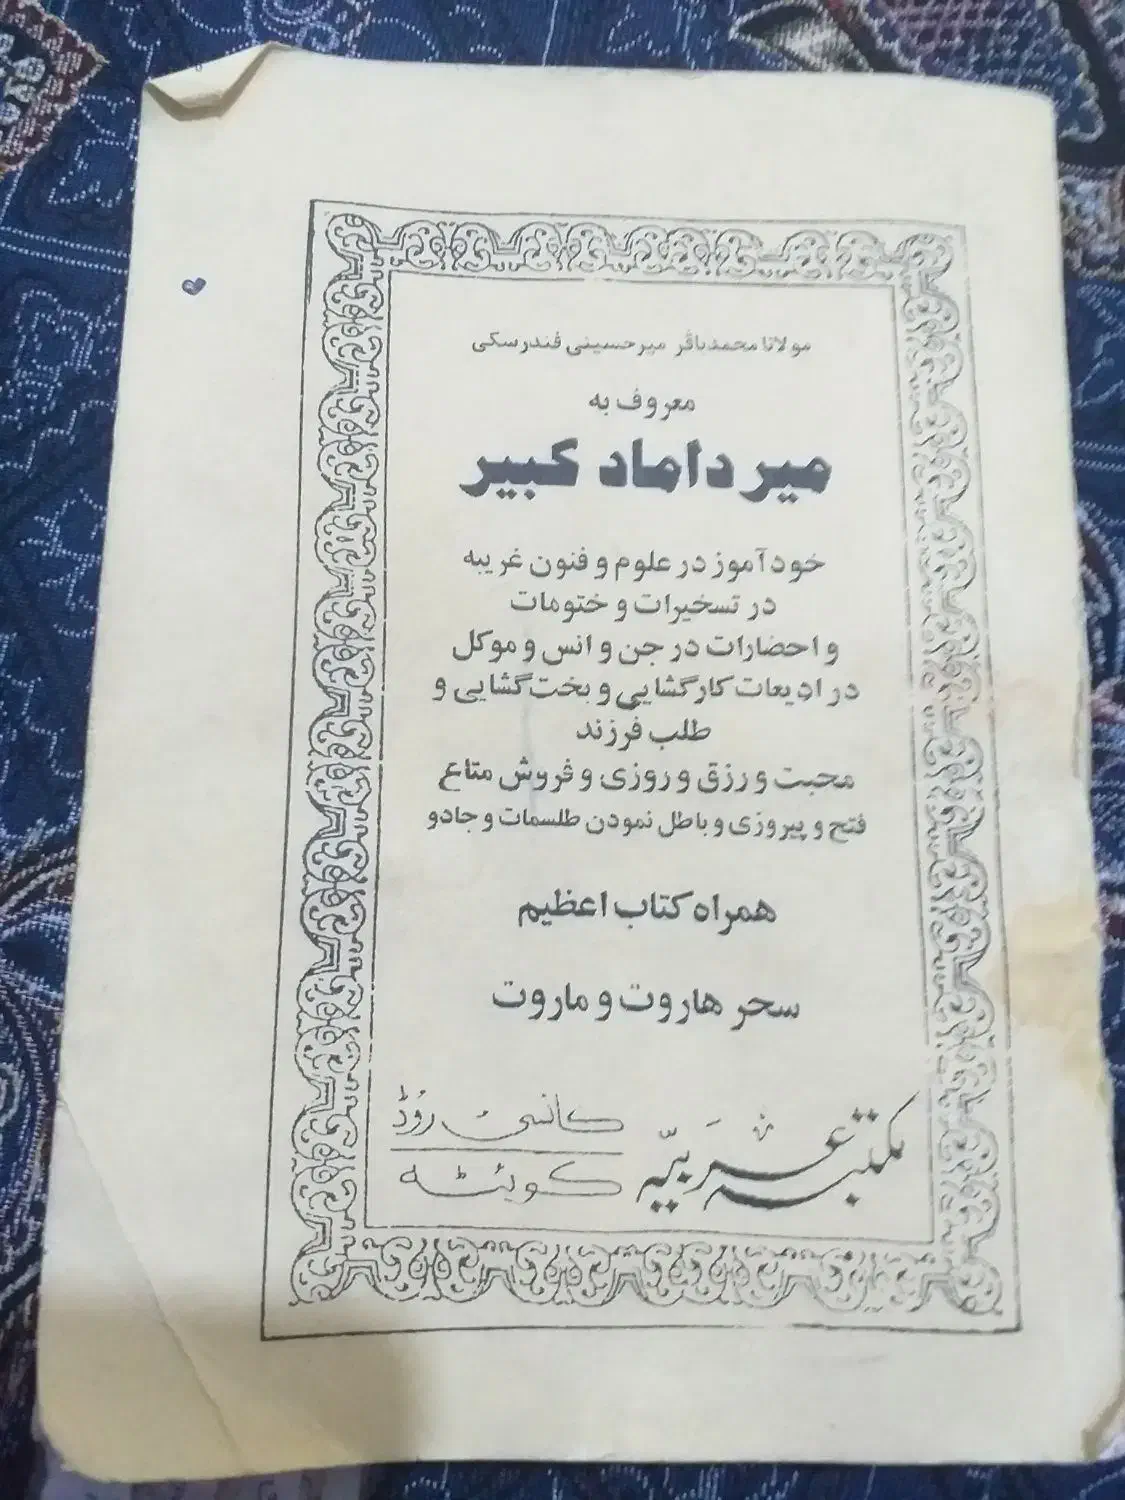 مولانا محمدباقر میرحسینی فندرسکی
معروف به
میر داماد کبیر
خودآموز در علوم و فنون غریبه
در تسخیرات و ختومات
و احضارات در جن و انس و موکل
در ادیعات کارگشایی و بخت‌گشایی و
طلب فرزند
محبت و رزق و روزی و فروش متاع
فتح و پیروزی و باطل نمودن طلسمات و جادو
همراه کتاب اعظیم
سحر هاروت و ماروت
مکتبہ عربیّہ
کانسی روڈ
کوئٹہ